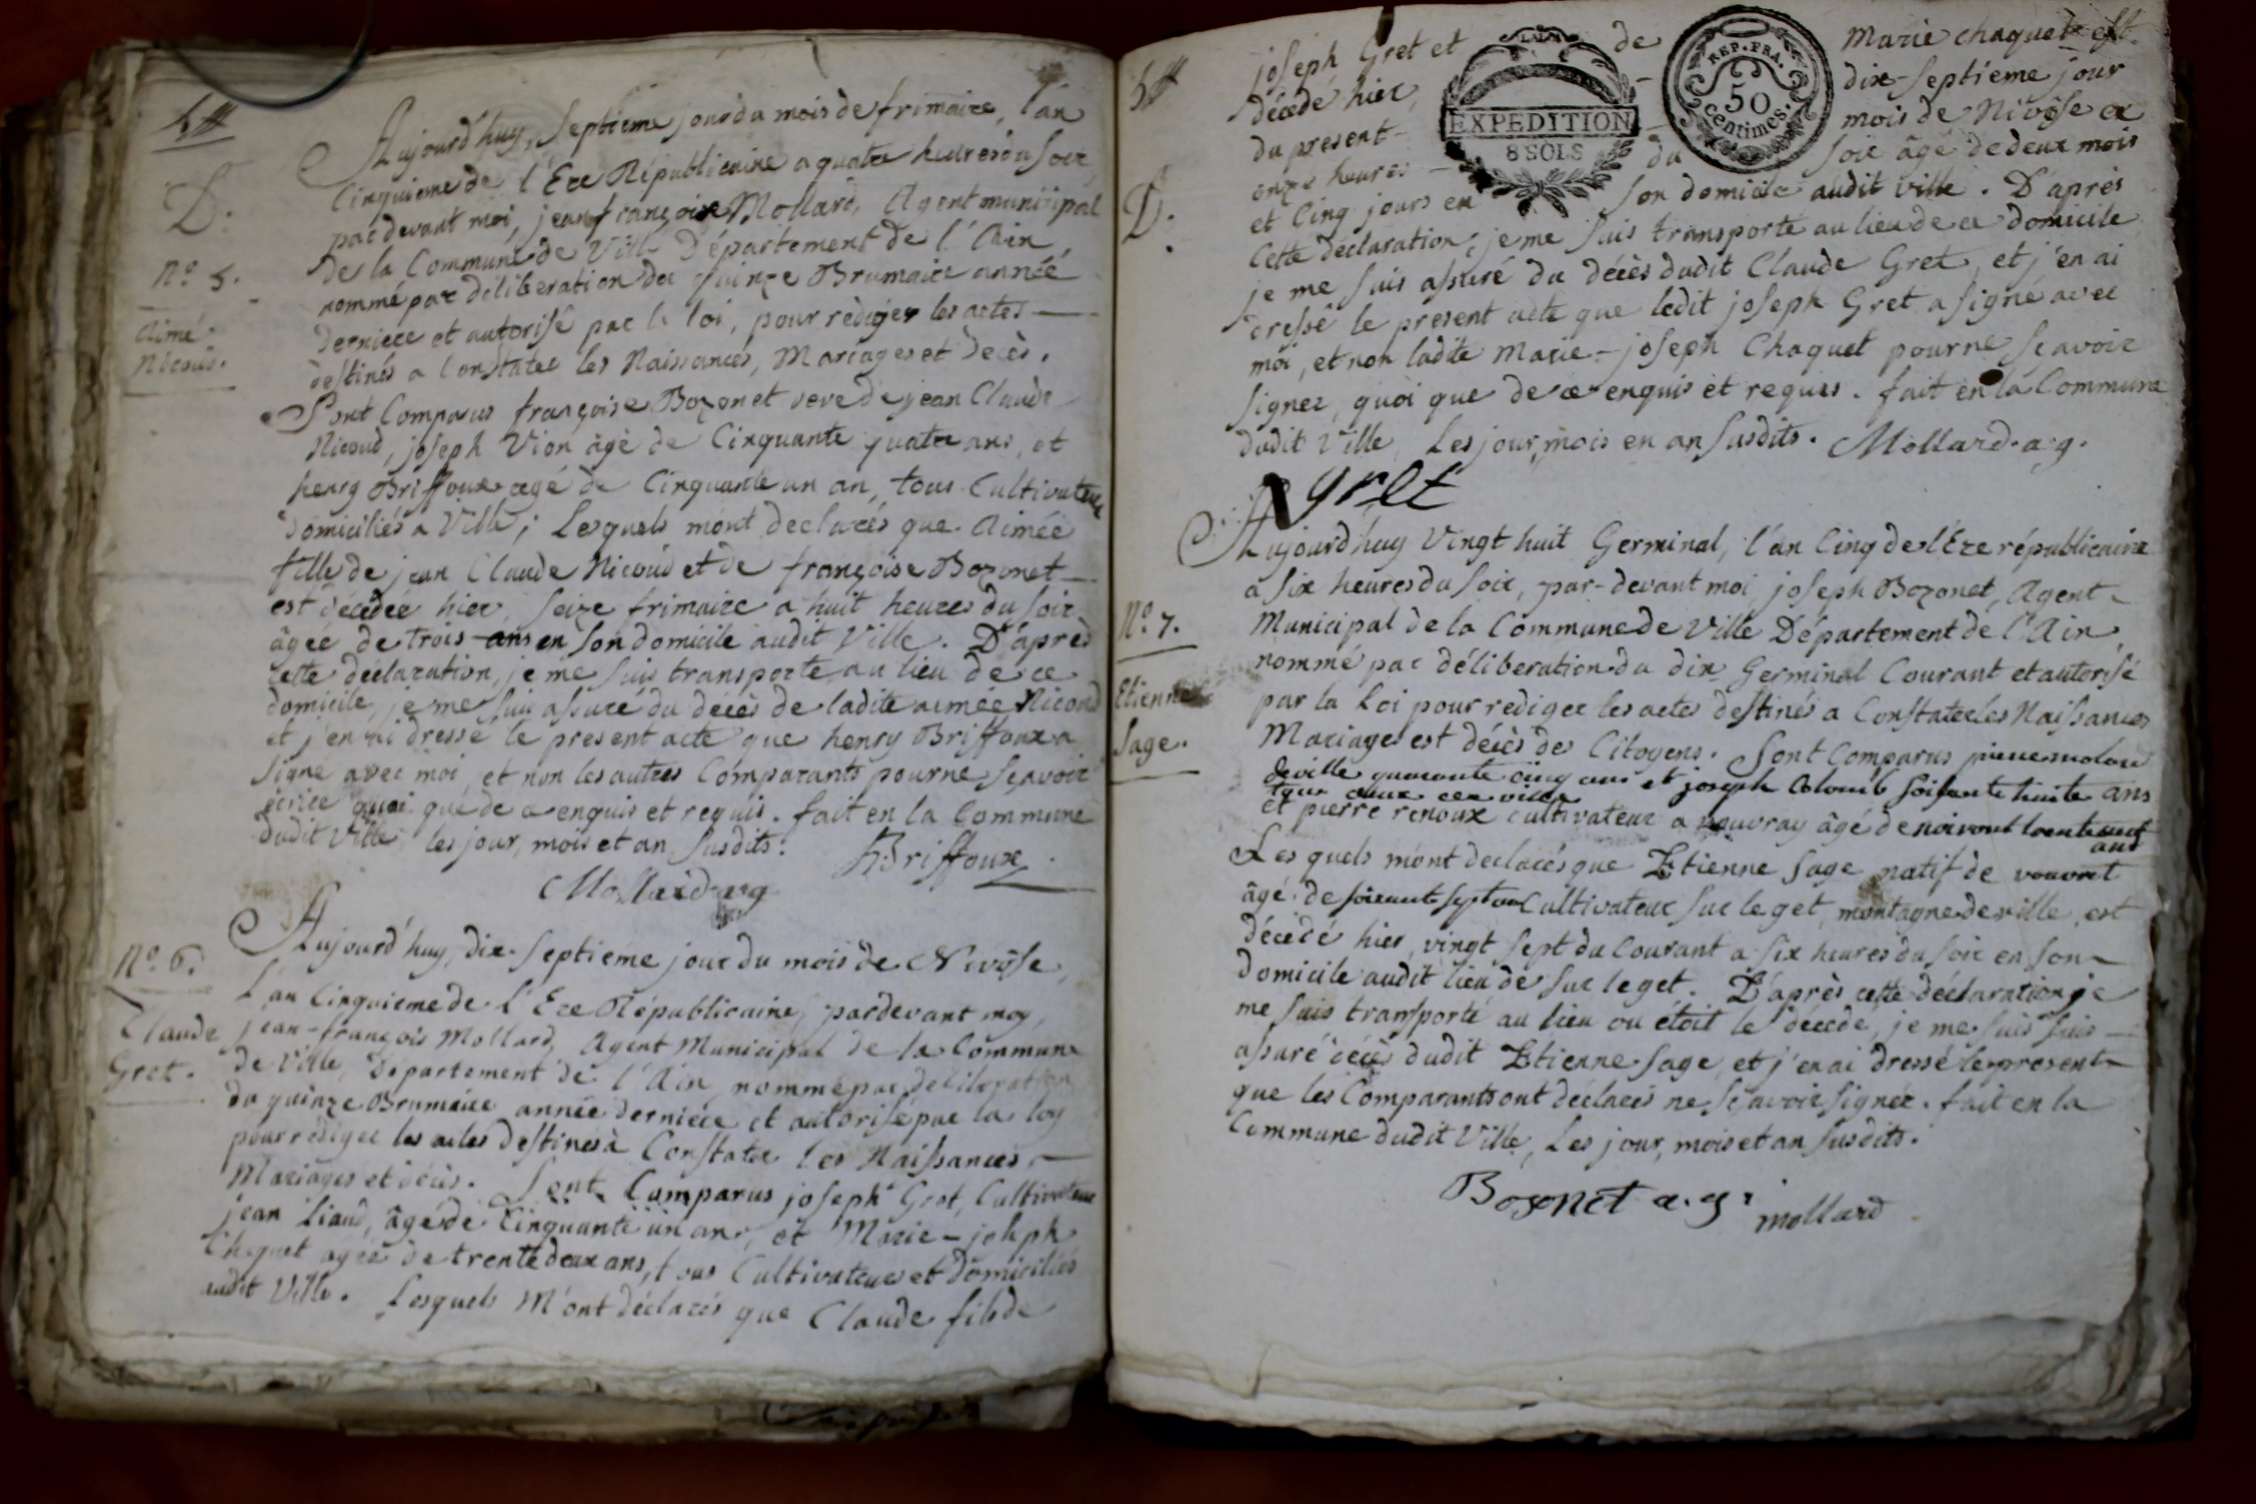 D.
Aujourd'huy, Septieme jour du mois de frimaire, l'an
Cinquieme de l'Ere Républicaine a quatre heures du Soir
par devant moi, jean françois Mollard, Agent municipal
de la Commune de Ville Département de l'Ain,
nommé par déliberation du quinze Brumaire année
derniere et autorisé par la loi, pour rédiger les actes
destinés a Constater les Naissances, Mariages et Decès.
N.o 5.
Aimé
Nicoud.
Sont Comparus françoise Bozonet veve de jean Claude
Nicoud, joseph Vion âgé de Cinquante quatre ans, et
henry Briffoux agé de Cinquante un an, tous Cultivateurs
domiciliés a Ville; Lesquels mont declarés que Aimée
fille de jean Claude Nicoud et de françoise Bozonet
est décédée hier, Seize frimaire a huit heures du Soir
âgée de trois ans en Son domicile audit Ville. D'après
cette déclaration, je me suis transporté au lieu de ce
domicile, je me suis assuré du décès de ladite aimée Nicoud
et j'en ai dressé le present acte que henry Briffoux a
Signé avec moi, et non les autres Comparants pour ne Sçavoir
écrire quoi que de ce enquis et requis. fait en la Commune
dudit Ville les jour, mois et an Susdits. hBriffoux
Mollard ag
N.o 6.
Claude
Gret.
Aujourd'huy, dix-Septieme jour du mois de Nivôse,
L'an Cinquieme de l'Ere Républicaine, pardevant moy
jean-françois Mollard, Agent Municipal de la Commune
de Ville, Département de l'Ain, nommé par déliberation
du quinze Brumaire année derniere et autorisé par la loy
pour rediger les actes destinés à Constater les Naissances,
Mariages et décès. Sont Comparus joseph Gret, Cultivateur
jean Liaud, âgé de Cinquante un an, et Marie-joseph
Chaquet agée de trente deux ans, tous Cultivateurs et Domiciliés
audit Ville. Lesquels M'ont déclarés que Claude fils de
joseph Gret et de Marie chaquet est
décédé hier, dix-Septieme jour
du present du mois de Nivôse a
onze heures du Soir âgé de deux mois
EXPEDITION
8 SOLS
REP. FRA.
50
Centimes.
D.
et Cinq jours en Son domicile audit ville. D'après
Cette déclaration, je me Suis transporté au lieu de ce domicile
je me Suis assuré du décès dudit Claude Gret, et j'en ai
dressé le present acte que ledit joseph Gret a signé avec
moi, et non ladite Marie-joseph Chaquet pour ne Sçavoir
Signer, quoi que de ce enquis et requis. fait en la Commune
dudit Ville, Les jour, mois en an Susdits. Mollard. a.g.
gret
Aujourd'huy Vingt huit Germinal, l'an Cinq de l'Ere républicaine
a Six heures du Soir, par-devant moi joseph Bozonet, Agent
N.o 7.
Etienne
Sage.
Municipal de la Commune de Ville Département de l'Ain,
nommé par déliberation du dix Germinal Courant et autorisé
par la Loi pour rediger les actes destinés a Constater les Naissances
Mariages est décès des Citoyens. Sont Comparus pierre molard
deville quarante cinq ans et joseph Colomb soisante huite ans
tous deux
et pierre renoux cultivateur a vouvray âgé de
ans
Lesquels m'ont declarés que Etienne Sage natif de vouvret
âgé de Cultivateur Sur le get, montagne de ville, est
décédé hier, vingt Sept du Courant a Six heures du Soir en Son
domicile audit lieu de Sur le get. D'après cette déclaration, je
me Suis transporté au lieu ou étoit le décédé, je me Suis Suis
assuré décès dudit Etienne Sage, et j'en ai dressé le present
que les Comparants ont déclarés ne Sçavoir Signer. fait en la
Commune dudit Ville, Les jour, mois et an Susdits.
Bozonet a.g. mollard